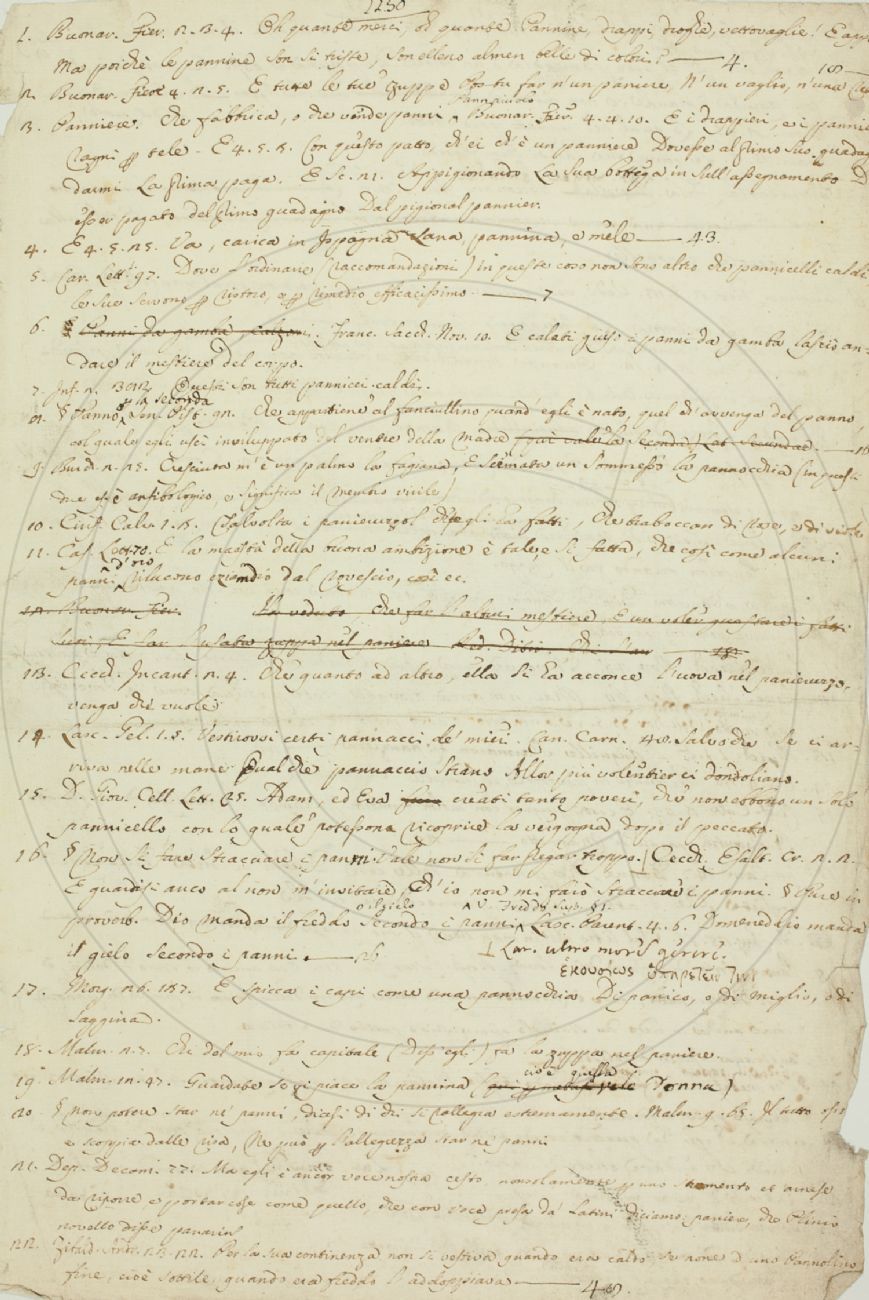 1250
1. Buonar. Fier. 2. 3. 4. Oh quante merci, oh quante Pannine, drappi, droghe, vettovaglie! E app
Ma poichè le pannine son sì triste, son elleno almen belle di colori? — 4.
2. Buonar. Fier. 4. 2. 5. E tutte le tue zuppe far n'un paniere, N'un vaglio, n'una
3. Panniere. Che fabbrica, o che vende panni Pannaiuolo Buonar. Fier. 4. 4. 10. E i drappieri, e i pannie
tele. E 4. 5. Con questo patto, ch'ei ch'è un panniere Dovesse al primo suo guadag
darmi La prima paga. E Sc. 21. Appigionando La sua bottega in sull'assegnamento D
esser pagato del primo guadagno Dal pigional pannier.
4. E 4. 5. 25. Va, carica in Ispagna Lana, pannina, e mele — 43.
5. Car. Lett. 97. Dove l'ordinarie (raccomandazioni) in queste cose non sono altro che pannicelli caldi
le sue servono p ristoro, e p rimedio efficacissimo. — 7
6. Panni da gamba, calzoni. Franc. Sacch. Nov. 10. E calati giuso i panni da gamba lasciò an-
dare il mestiere del corpo.
7. Inf. n. Questi son tutti pannicei caldi.
8. § Panno p la seconda Sen. Pist. 92. Che appartiene al fanciullino quand'egli è nato, quel ch'avvenga del panno,
col quale egli uscì inviluppato del ventre della madre
9. Burch. 2. 25. Cresciuta m'è un palmo la fagiana, E scemata un sommesso la pannocchia (in
che è anfibologico, e significa il membro virile)
10. Ciriff. Calv. 1. Talvolta i panieruzzol ch'egli ha fatti, Che traboccan di rose, e di viole
11. Cas. Lett. 70. E la maestà della buona ambizione è tale, e sì fatta, che così come alcuni
panni d'oro rilucono eziandio dal rovescio, così ec.
12. Buonar. Fier. Ha veduto, che far l'altrui mestiere, È un voler guastare i fatti
suoi, E far l'usata zuppa nel paniere
13. Cecch. Incant. 2. 4. Che quanto ad altro, ella si ha acconce l'uova nel panieruzzo,
venga chi vuole.
14. Lasc. Gel. 1. 5. Vestirovvi certi pannacci de' miei. Can. Carn. 48. Salvo che se ci ar-
riva nelle mane Qualche pannaccio strano Allor più volentier ci dondoliano.
15. D. Giov. Cell. Lett. 25. Adam, ed Eva creati tanto poveri, che non ebbono un solo
pannicello con lo quale potessono ricoprire la vergogna dopo il peccato.
16. § Non si fare stracciare i panni vale non si far pregar troppo. Cecch. Esalt. Cr. 2. 2.
E guardisi anco al non m'invitare, Ch'io non mi farò stracciare i panni. § Pure in
proverb. Dio manda il freddo o il gielo secondo i panni V. Freddo Sust. §1. Lasc. Parent. 4. 6. Domeneddio manda
il gielo secondo i panni. — 26 Lat. ultro morem gerere.
ἑκουσίως ὑπηρετεῖν τινί
17. Morg. 26. 187. E spicca i capi come una pannocchia Di panico, o di miglio, o di
saggina.
18. Malm. 2. 7. Chi del mio fa capitale (Diss'egli) fa la zuppa nel paniere.
19. Malm. 12. 47. Guardate se vi piace la pannina (cioè quella Donna)
20. § Non potere star ne' panni, dicesi di chi si rallegra estremamente. Malm. 9. 65. Il tutto
e scoppia dalle risa, Nè può p l'allegrezza star ne' panni
21. Dep. Decam. 77. Ma egli è ancor voce nostra cesto, non solamente p uno strumento et arnese
da riporre e portar cose come quello, che con voce presa da' Latini diciamo paniere, che Plinio
novello disse panarium
22. Zibald. Andr. 122. Per la sua continenza non si vestiva quando era caldo se none d'uno Pannolino
fine, cioè sottile, quando era freddo l'addoppiava — 48.